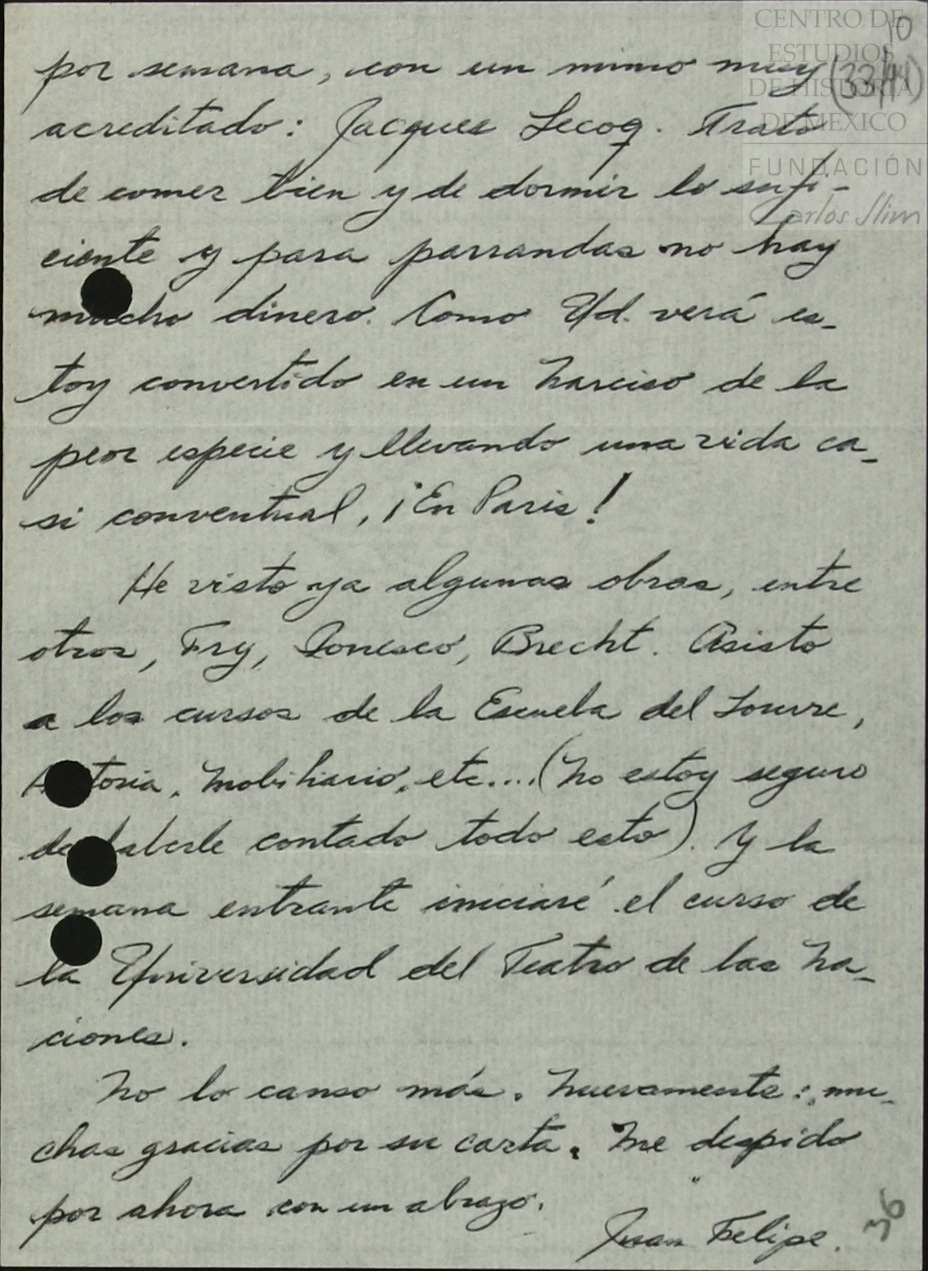 CENTRO DE
ESTUDIOS
DE HISTORIA
DE MEXICO
FUNDACIÓN
Carlos Slim
10
por semana, con un mimo muy (33/41)
acreditado: Jacques Lecoq. Trato
de comer bien y de dormir lo sufi-
ciente y para parrandas no hay
mucho dinero. Como Ud. verá es-
toy convertido en un Narciso de la
peor especie y llevando una vida ca-
si conventual, ¡En Paris!
He visto ya algunas obras, entre
otros, Fry, Ionesco, Brecht. Asisto
a los cursos de la Escuela del Louvre,
toria, Mobiliario, etc....(No estoy seguro
de haberle contado todo esto). Y la
semana entrante iniciaré el curso de
la Universidad del Teatro de las Na-
ciones.
No lo canso más. Nuevamente: mu-
chas gracias por su carta. Me despido
por ahora con un abrazo.
Juan Felipe.
36